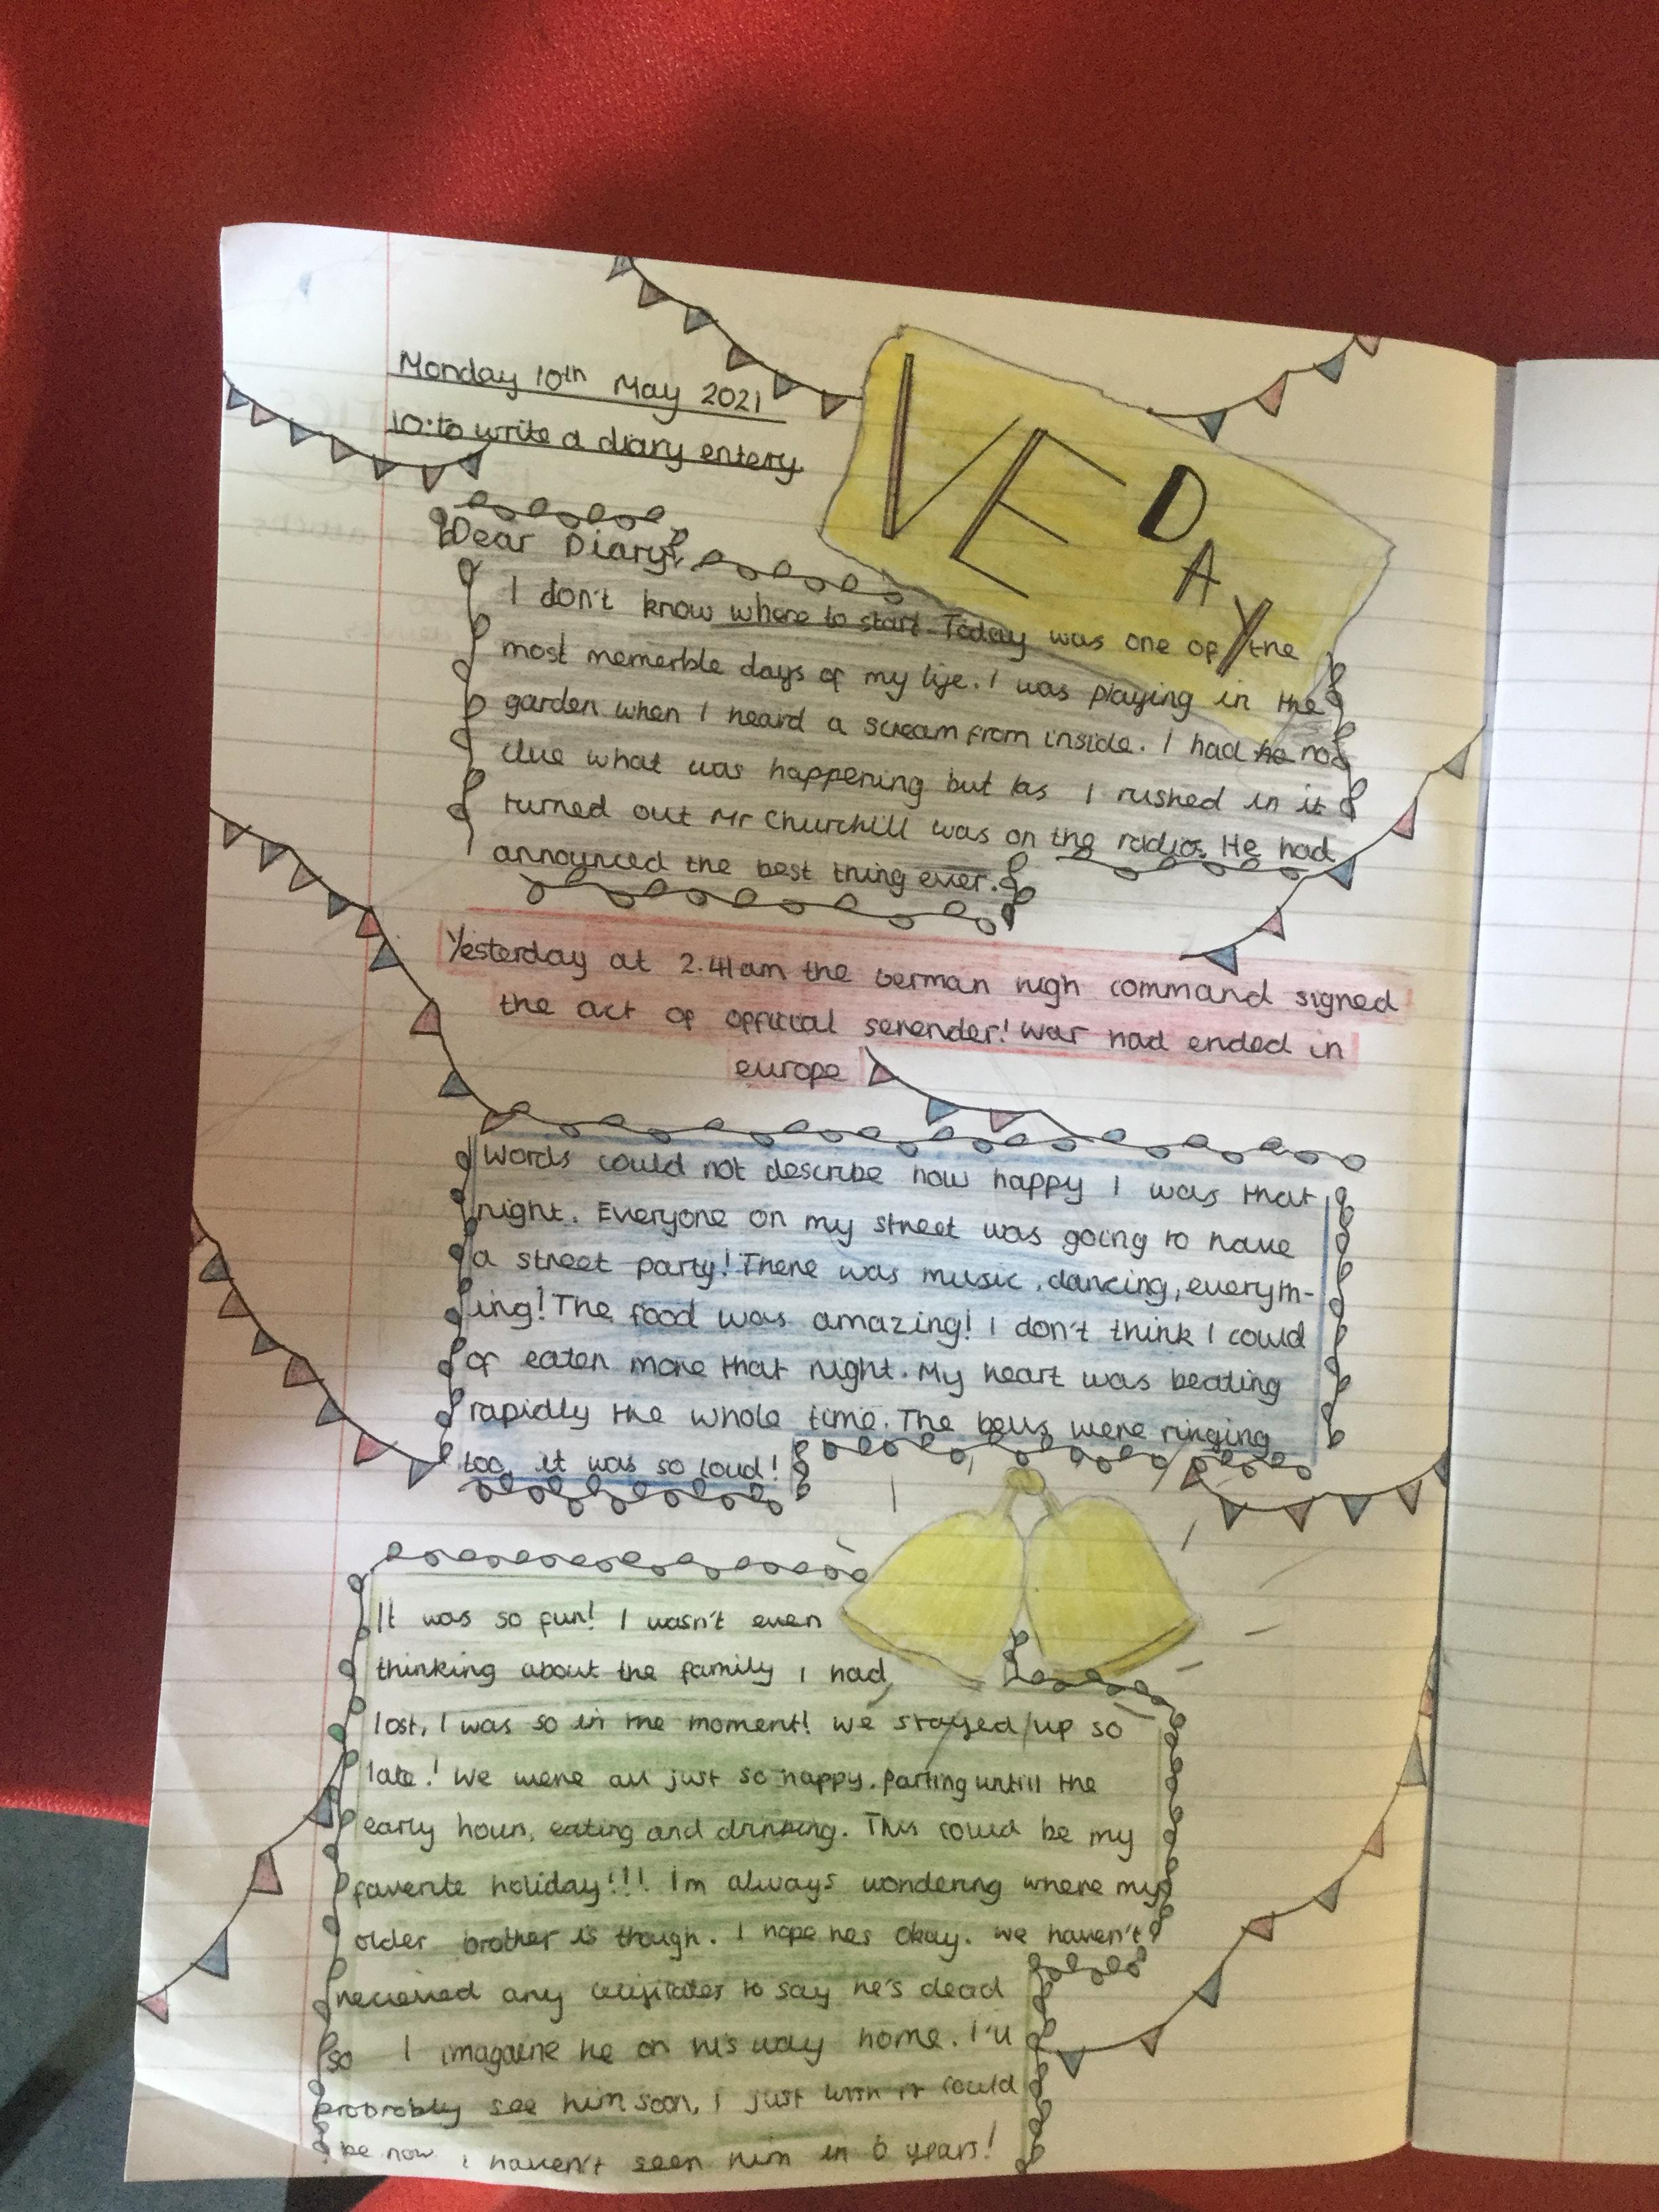 Monday 10th May 2021
LO: to write a diary entery
VE DAY
Dear Diary,
I don't know where to start. Today was one of the
most memerble days of my life. I was playing in the
garden when I heard a scream from inside. I had no
clue what was happening but as I rushed in it
turned out Mr Churchill was on the radio. He had
announced the best thing ever.
Yesterday at 2.41am the German high command signed
the act of official serender! War had ended in
europe
Words could not describe how happy I was that
night. Everyone on my street was going to have
a street party! There was music, dancing, everyth-
ing! The food was amazing! I don't think I could
of eaten more that night. My heart was beating
rapidly the whole time. The bells were ringing
too, it was so loud!
It was so fun! I wasn't even
thinking about the family I had
lost, I was so in the moment! We stayed up so
late! We were all just so happy. Parting untill the
early hours, eating and drinking. This could be my
faverite holiday!!! I'm always wondering where my
older brother is though. I hope hes okay. We haven't
recieved any to say he's dead
so I imagaine he on his way home. I'll
probrobly see him soon, I just wish it could
be now I haven't seen him in 6 years!